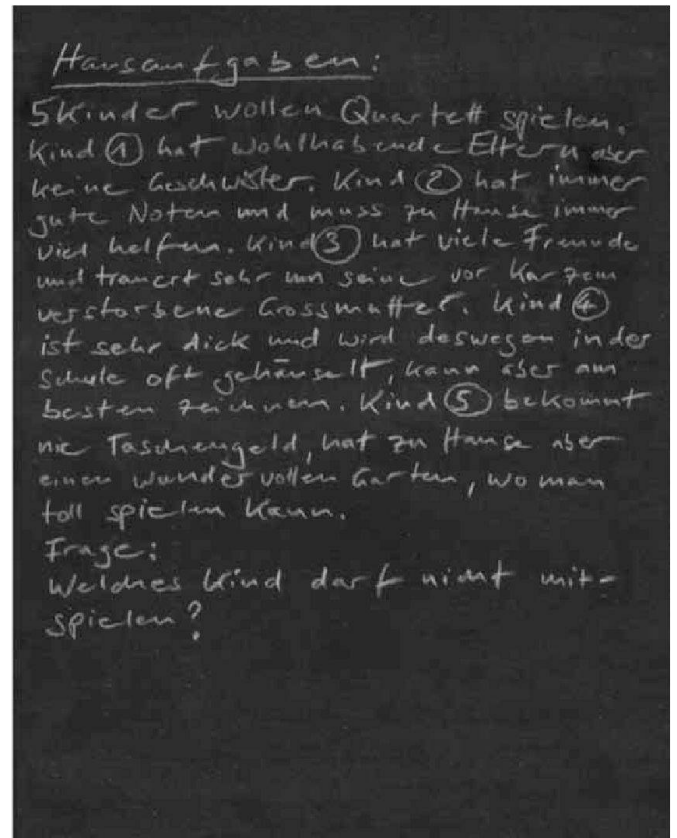 Hausaufgaben:
5 Kinder wollen Quartett spielen.
Kind ① hat wohlhabende Eltern aber
keine Geschwister. Kind ② hat immer
gute Noten und muss zu Hause immer
viel helfen. Kind ③ hat viele Freunde
und trauert sehr um seine vor Kurzem
verstorbene Grossmutter. Kind ④
ist sehr dick und wird deswegen in der
Schule oft gehänselt, kann aber am
besten zeichnen. Kind ⑤ bekommt
nie Taschengeld, hat zu Hause aber
einen wundervollen Garten, wo man
toll spielen kann.
Frage:
Welches Kind darf nicht mit-
spielen?